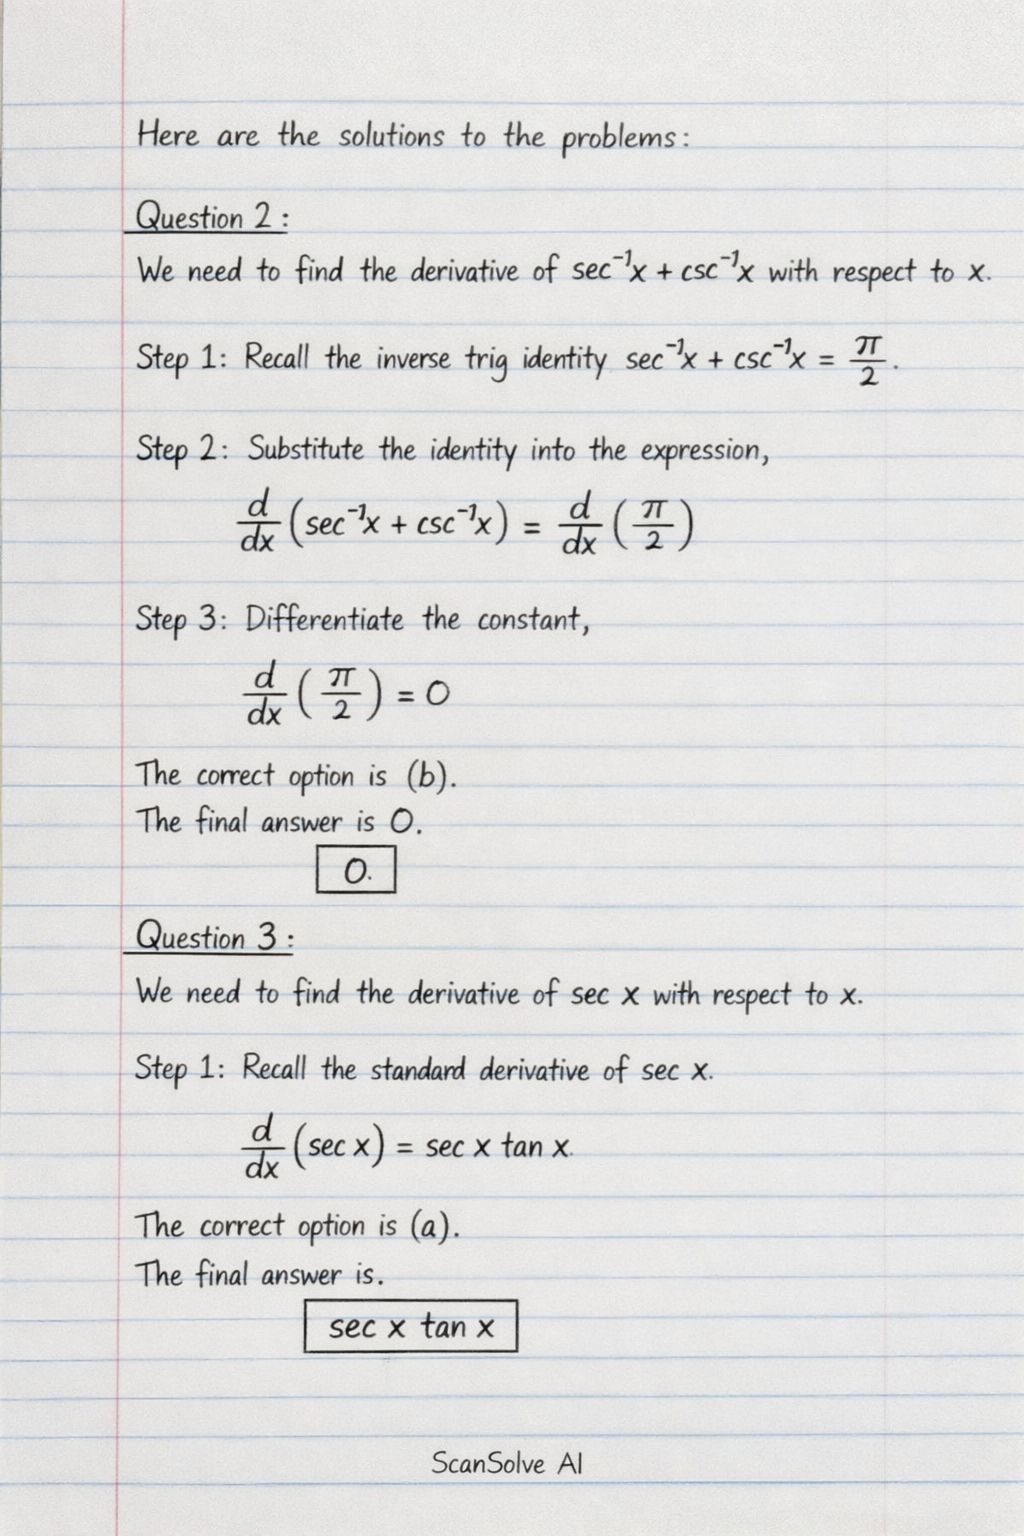 Here are the solutions to the problems:
Question 2:
We need to find the derivative of sec⁻¹x + csc⁻¹x with respect to x.
Step 1: Recall the inverse trig identity sec⁻¹x + csc⁻¹x = π/2.
Step 2: Substitute the identity into the expression,
d/dx (sec⁻¹x + csc⁻¹x) = d/dx (π/2)
Step 3: Differentiate the constant,
d/dx (π/2) = 0
The correct option is (b).
The final answer is 0.
0.
Question 3:
We need to find the derivative of sec x with respect to x.
Step 1: Recall the standard derivative of sec x.
d/dx (sec x) = sec x tan x.
The correct option is (a).
The final answer is.
sec x tan x
ScanSolve AI